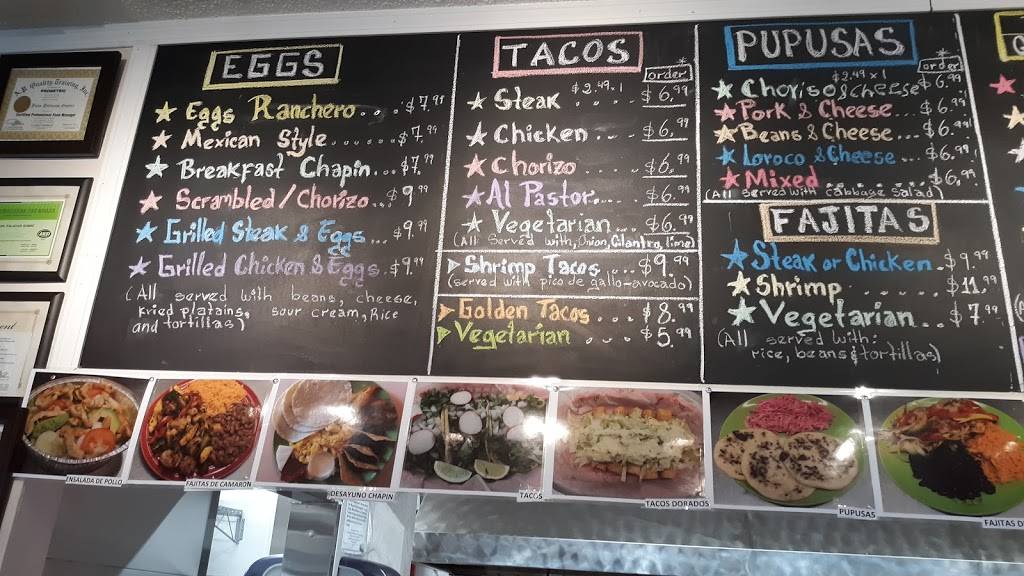 EGGS
Eggs Ranchero .... $7.99
Mexican Style...... $7.99
Breakfast Chapin... $7.99
Scrambled/Chorizo.. $9.99
Grilled Steak & Eggs... $9.99
Grilled Chicken & Eggs. $9.99
(All served with beans, cheese,
kried platains, sour cream, Rice
and tortillas)
TACOS
order
Steak $2.49.1 $6.99
Chicken .... $6.99
Chorizo .... $6.99
Al Pastor.... $6.99
Vegetarian .... $6.99
(All served with, Onion, Cilantro, lime)
Shrimp Tacos ... $9.99
(served with pico de gallo-avocado)
Golden Tacos ... $8.99
Vegetarian ... $5.99
PUPUSAS
$2.49 x 1 order
Choriso & cheese $6.99
Pork & Cheese.... $6.99
Beans & Cheese... $6.99
Loroco & Cheese... $6.99
Mixed ....... $6.99
(All served with cabbage salad)
FAJITAS
Steak or Chicken. $9.99
Shrimp ...... $11.99
Vegetarian.. $7.99
(All served with:
rice, beans & tortillas)
ENSALADA DE POLLO
FAJITAS DE CAMARON
DESAYUNO CHAPIN
TACOS
TACOS DORADOS
PUPUSAS
FAJITAS D